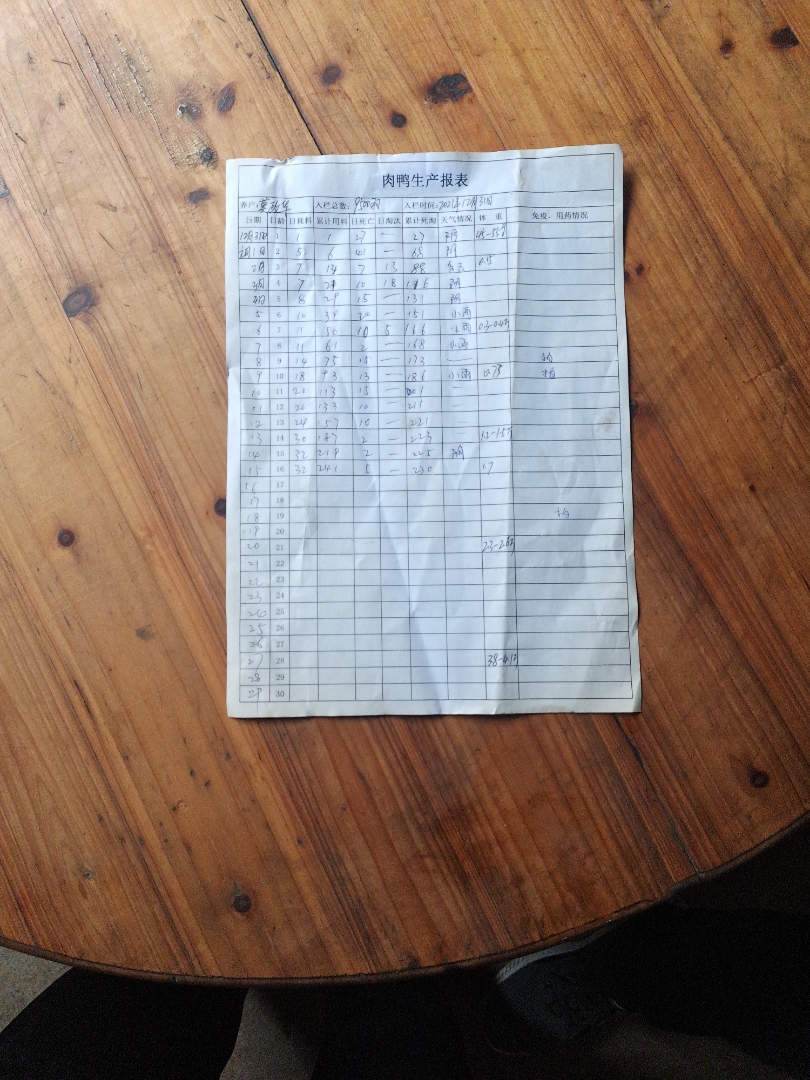 肉鸭生产报表
养户: 入栏总数:9500羽 入栏时间:2021年12月31日
日期 日龄 日耗料 累计用料 日死亡 日淘汰 累计死淘 天气情况 体重 免疫、用药情况
12月31日 1 1 1 27 — 27
1月1日 2 5 6 41 — 68
2日 3 7 7 13 88
3日 4 7 10 18 116 阴
4日 5 8 29 15 — 131 阴
5 6 10 39 — 151 小雨
6 7 11 50 10 5 166 小雨
7 8 11 61 2 — 168 小雨
8 9 14 75 — 173 —
9 10 18 93 13 — 186 小雨 0.75
10 11 20 113 15 — 201 —
11 12 20 133 10 — 211 —
12 13 24 157 10 — 221 —
13 14 30 187 2 — 223 —
14 15 32 219 2 — 225 阴
15 16 32 241 5 — 230 1.7
16 17
17 18
18 19
19 20
20 21
21 22
22 23
23 24
25
25 26
26 27
27 28
28 29
29 30